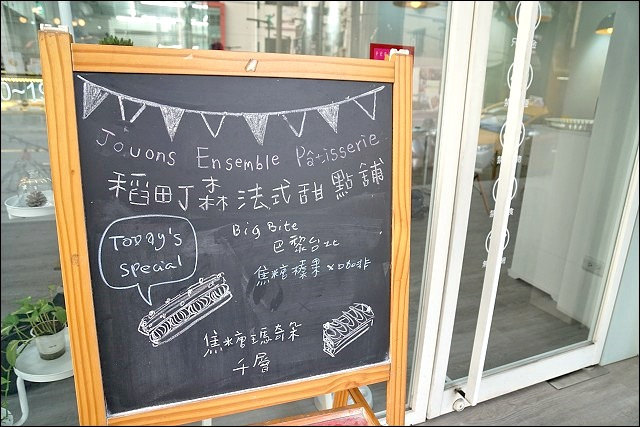 Jouons Ensemble Pâtisserie
稻田J森法式甜點舖
Today's
special
Big Bite
巴黎台北
焦糖榛果x咖啡
焦糖瑪奇朵
千層